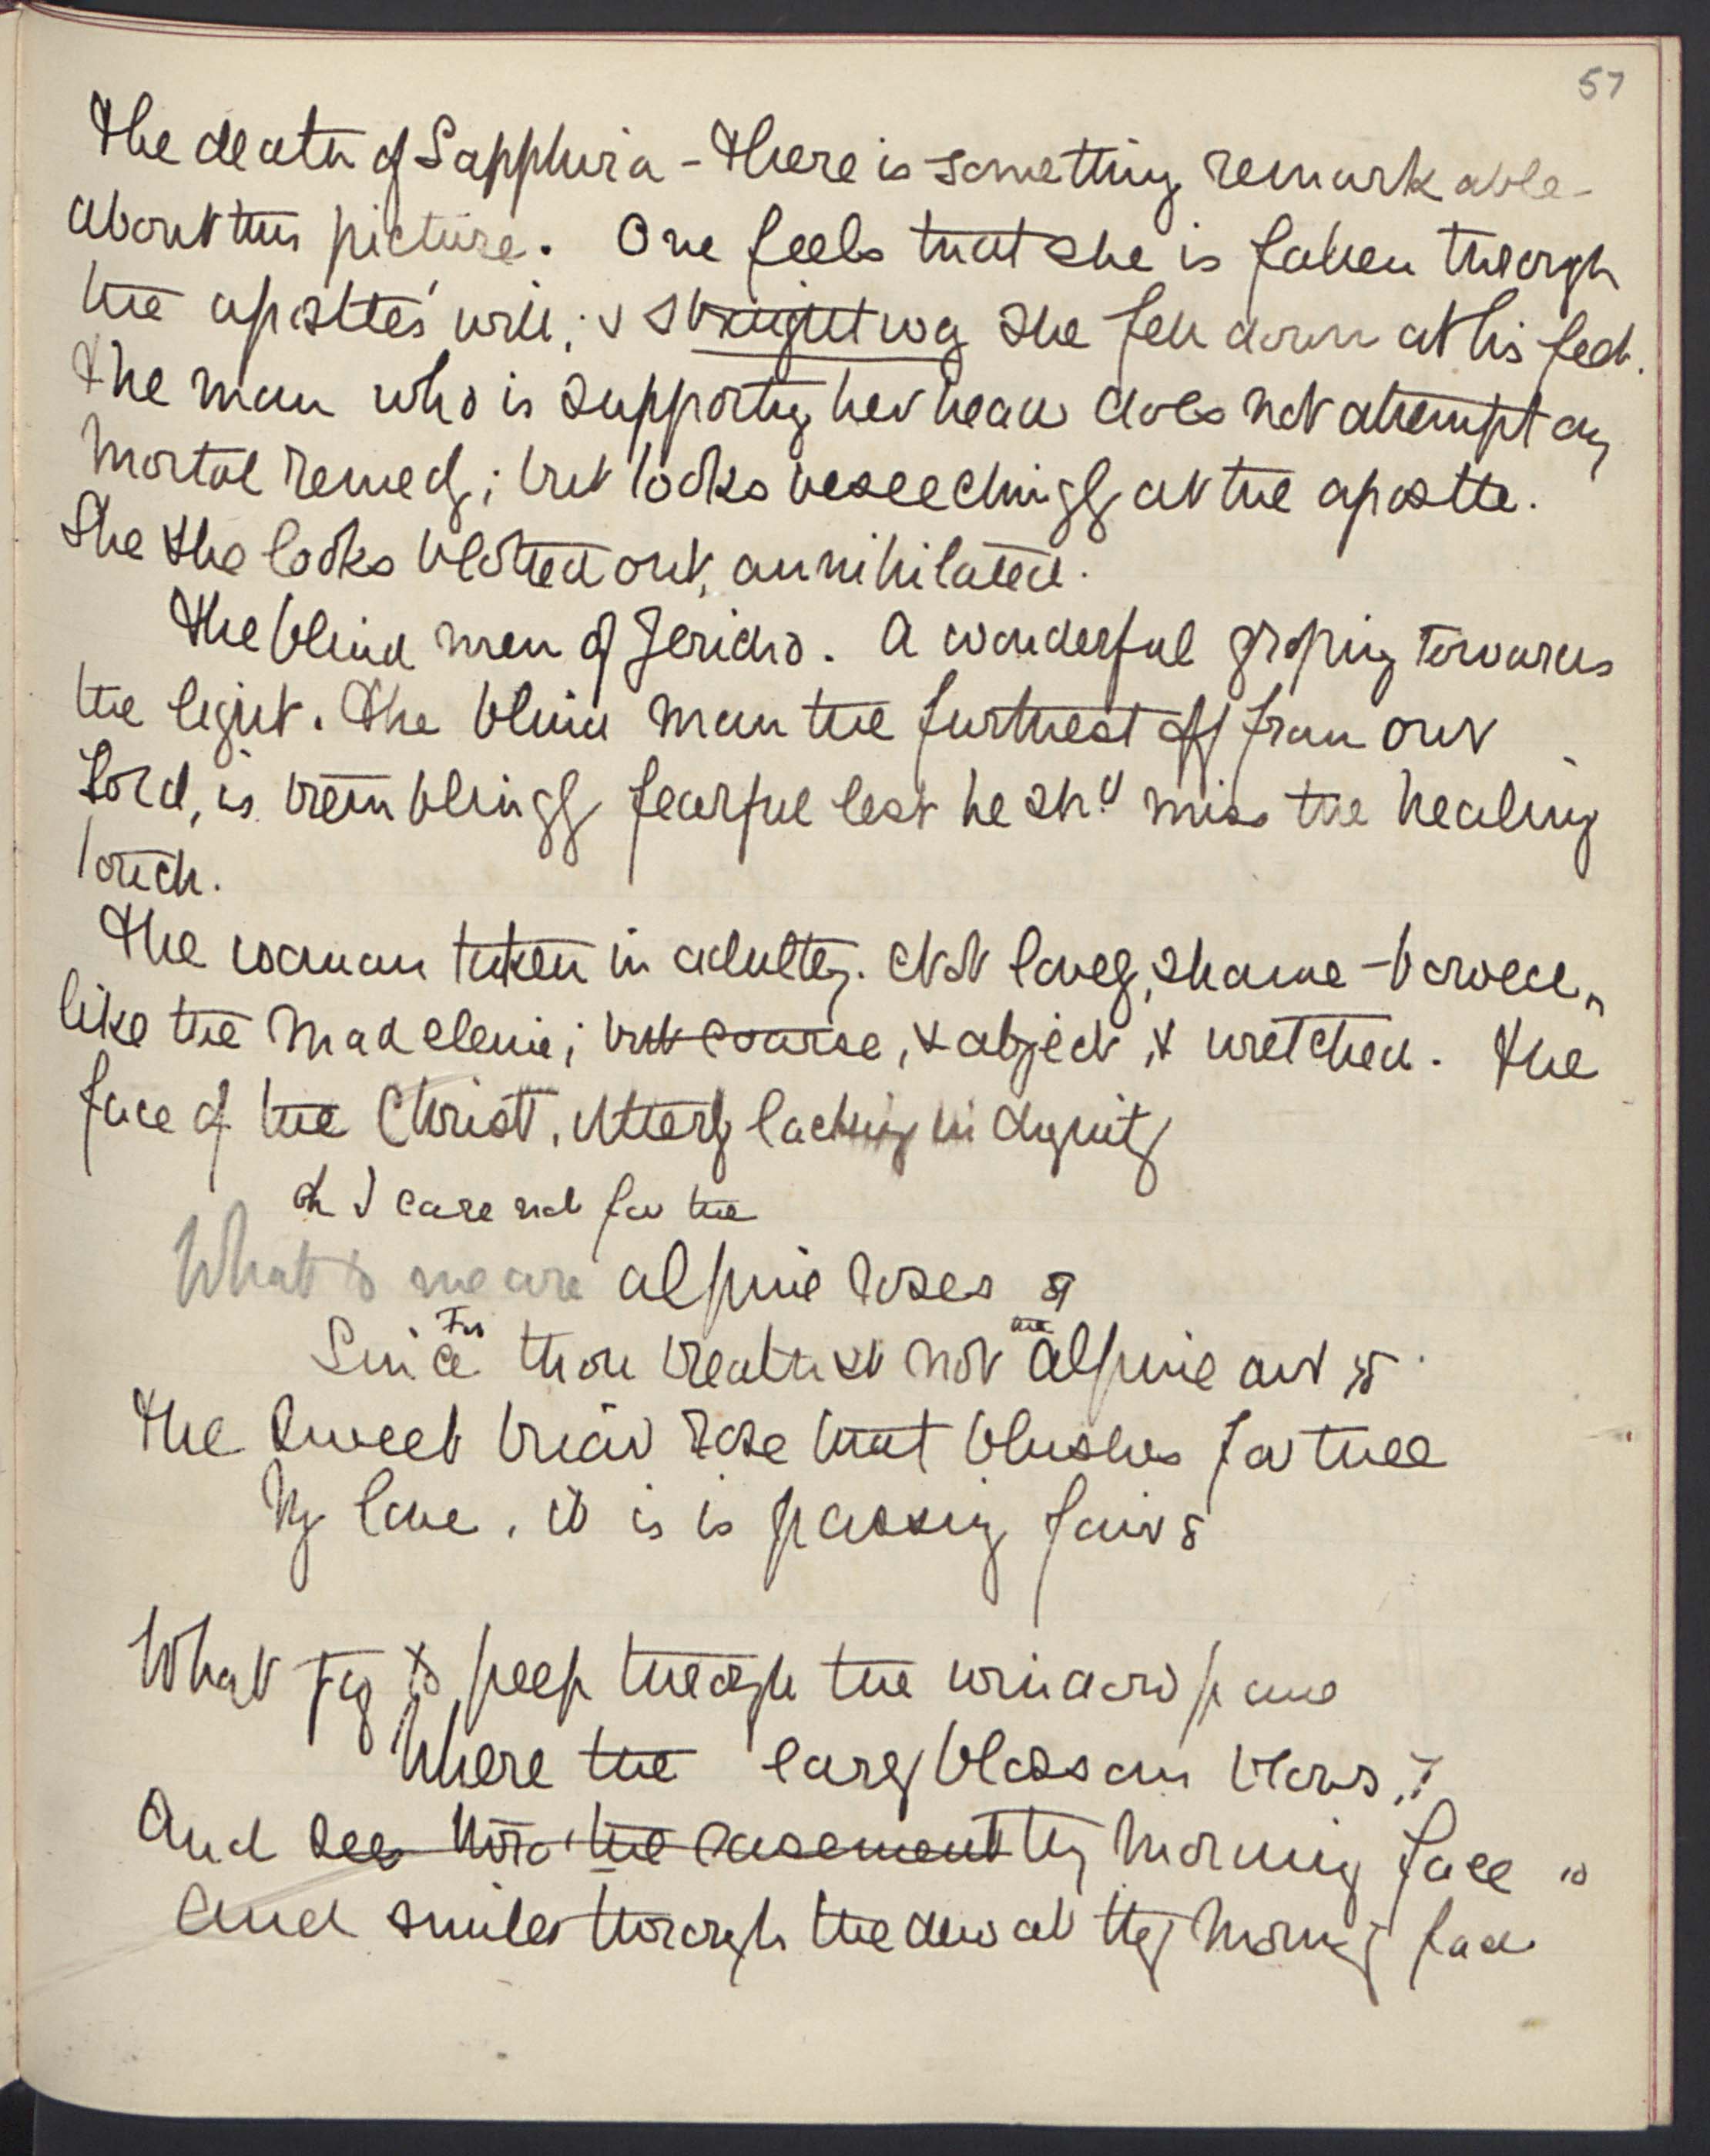 57
The death of Sapphira - There is something remarkable
about this picture. One feels that she is fallen through
the apostle's will; & straightway she fell down at his feet.
The man who is supporting her head does not attempt any
mortal remedy; but looks beseechingly at the apostle.
She she looks blotted out, annihilated.
The blind men of Jericho. A wonderful groping towards
the light. The blind man the furthest off from our
Lord, is tremblingly fearful lest he shd miss the healing
touch.
The woman taken in adultery. Not lovely, shame-bowed,
like the Madeleine; but coarse, & abject, & wretched. The
face of the Christ, utterly lacking in dignity
Oh I care not for the
What to me are alpine roses
For
the
Since thou breathest not alpine air
The sweet briar rose that blushes for thee
My love, it is is passing fair
What joy to peep through the window pane
Where the early blossom blows,?
And see thro' the casement thy morning face
And smiles through the dew at thy morning face